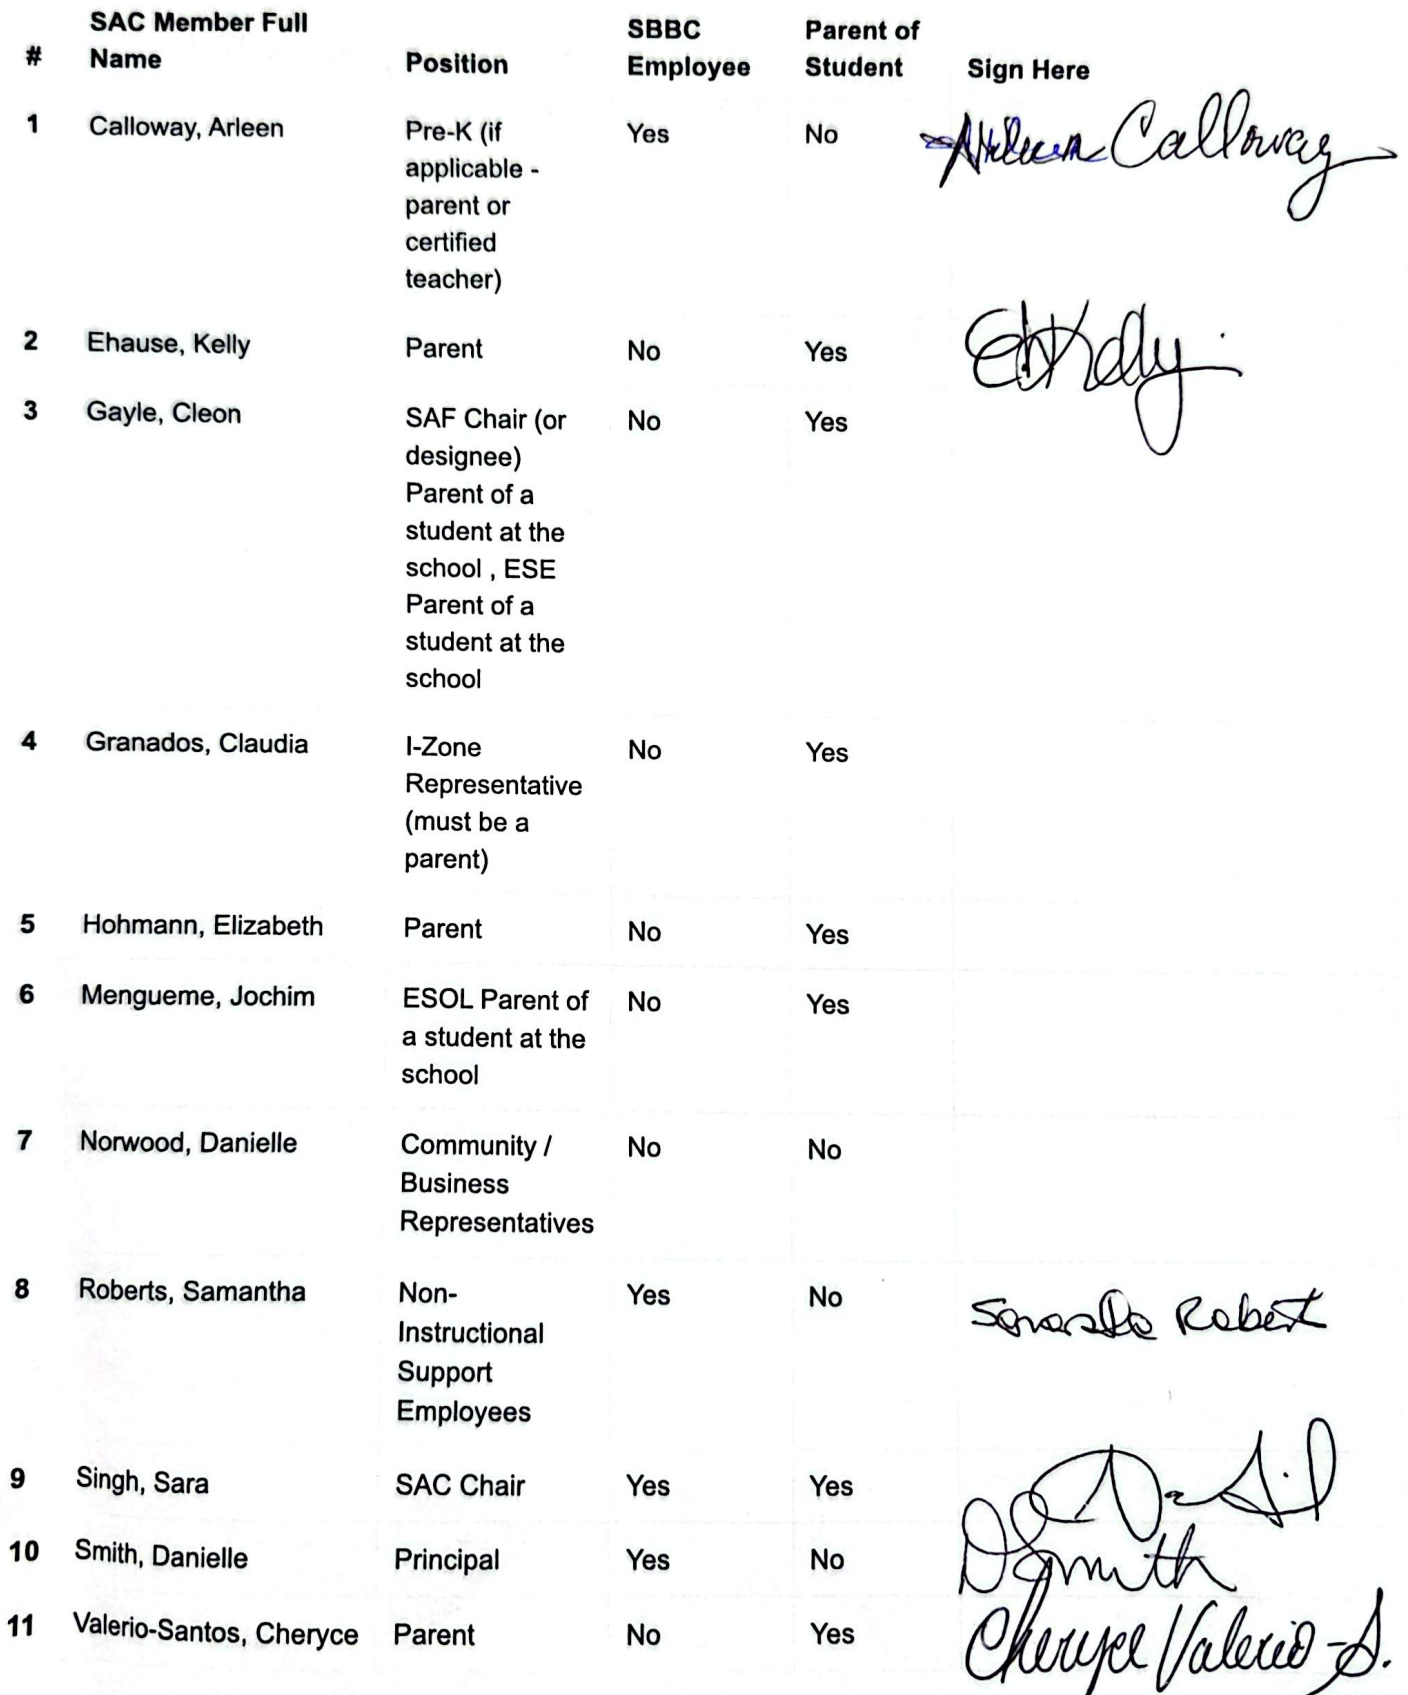 # SAC Member Full Name Position SBBC Employee Parent of Student Sign Here
1 Calloway, Arleen Pre-K (if Yes No Arleen Calloway
applicable -
parent or
certified
teacher)
2 Ehause, Kelly Parent No Yes EhKelly
3 Gayle, Cleon SAF Chair (or No Yes
designee)
Parent of a
student at the
school , ESE
Parent of a
student at the
school
4 Granados, Claudia I-Zone No Yes
Representative
(must be a
parent)
5 Hohmann, Elizabeth Parent No Yes
6 Mengueme, Jochim ESOL Parent of No Yes
a student at the
school
7 Norwood, Danielle Community / No No
Business
Representatives
8 Roberts, Samantha Non- Yes No Robert
Instructional
Support
Employees
9 Singh, Sara SAC Chair Yes Yes
10 Smith, Danielle Principal Yes No DSmith
11 Valerio-Santos, Cheryce Parent No Yes Cheryce Valerio-S.